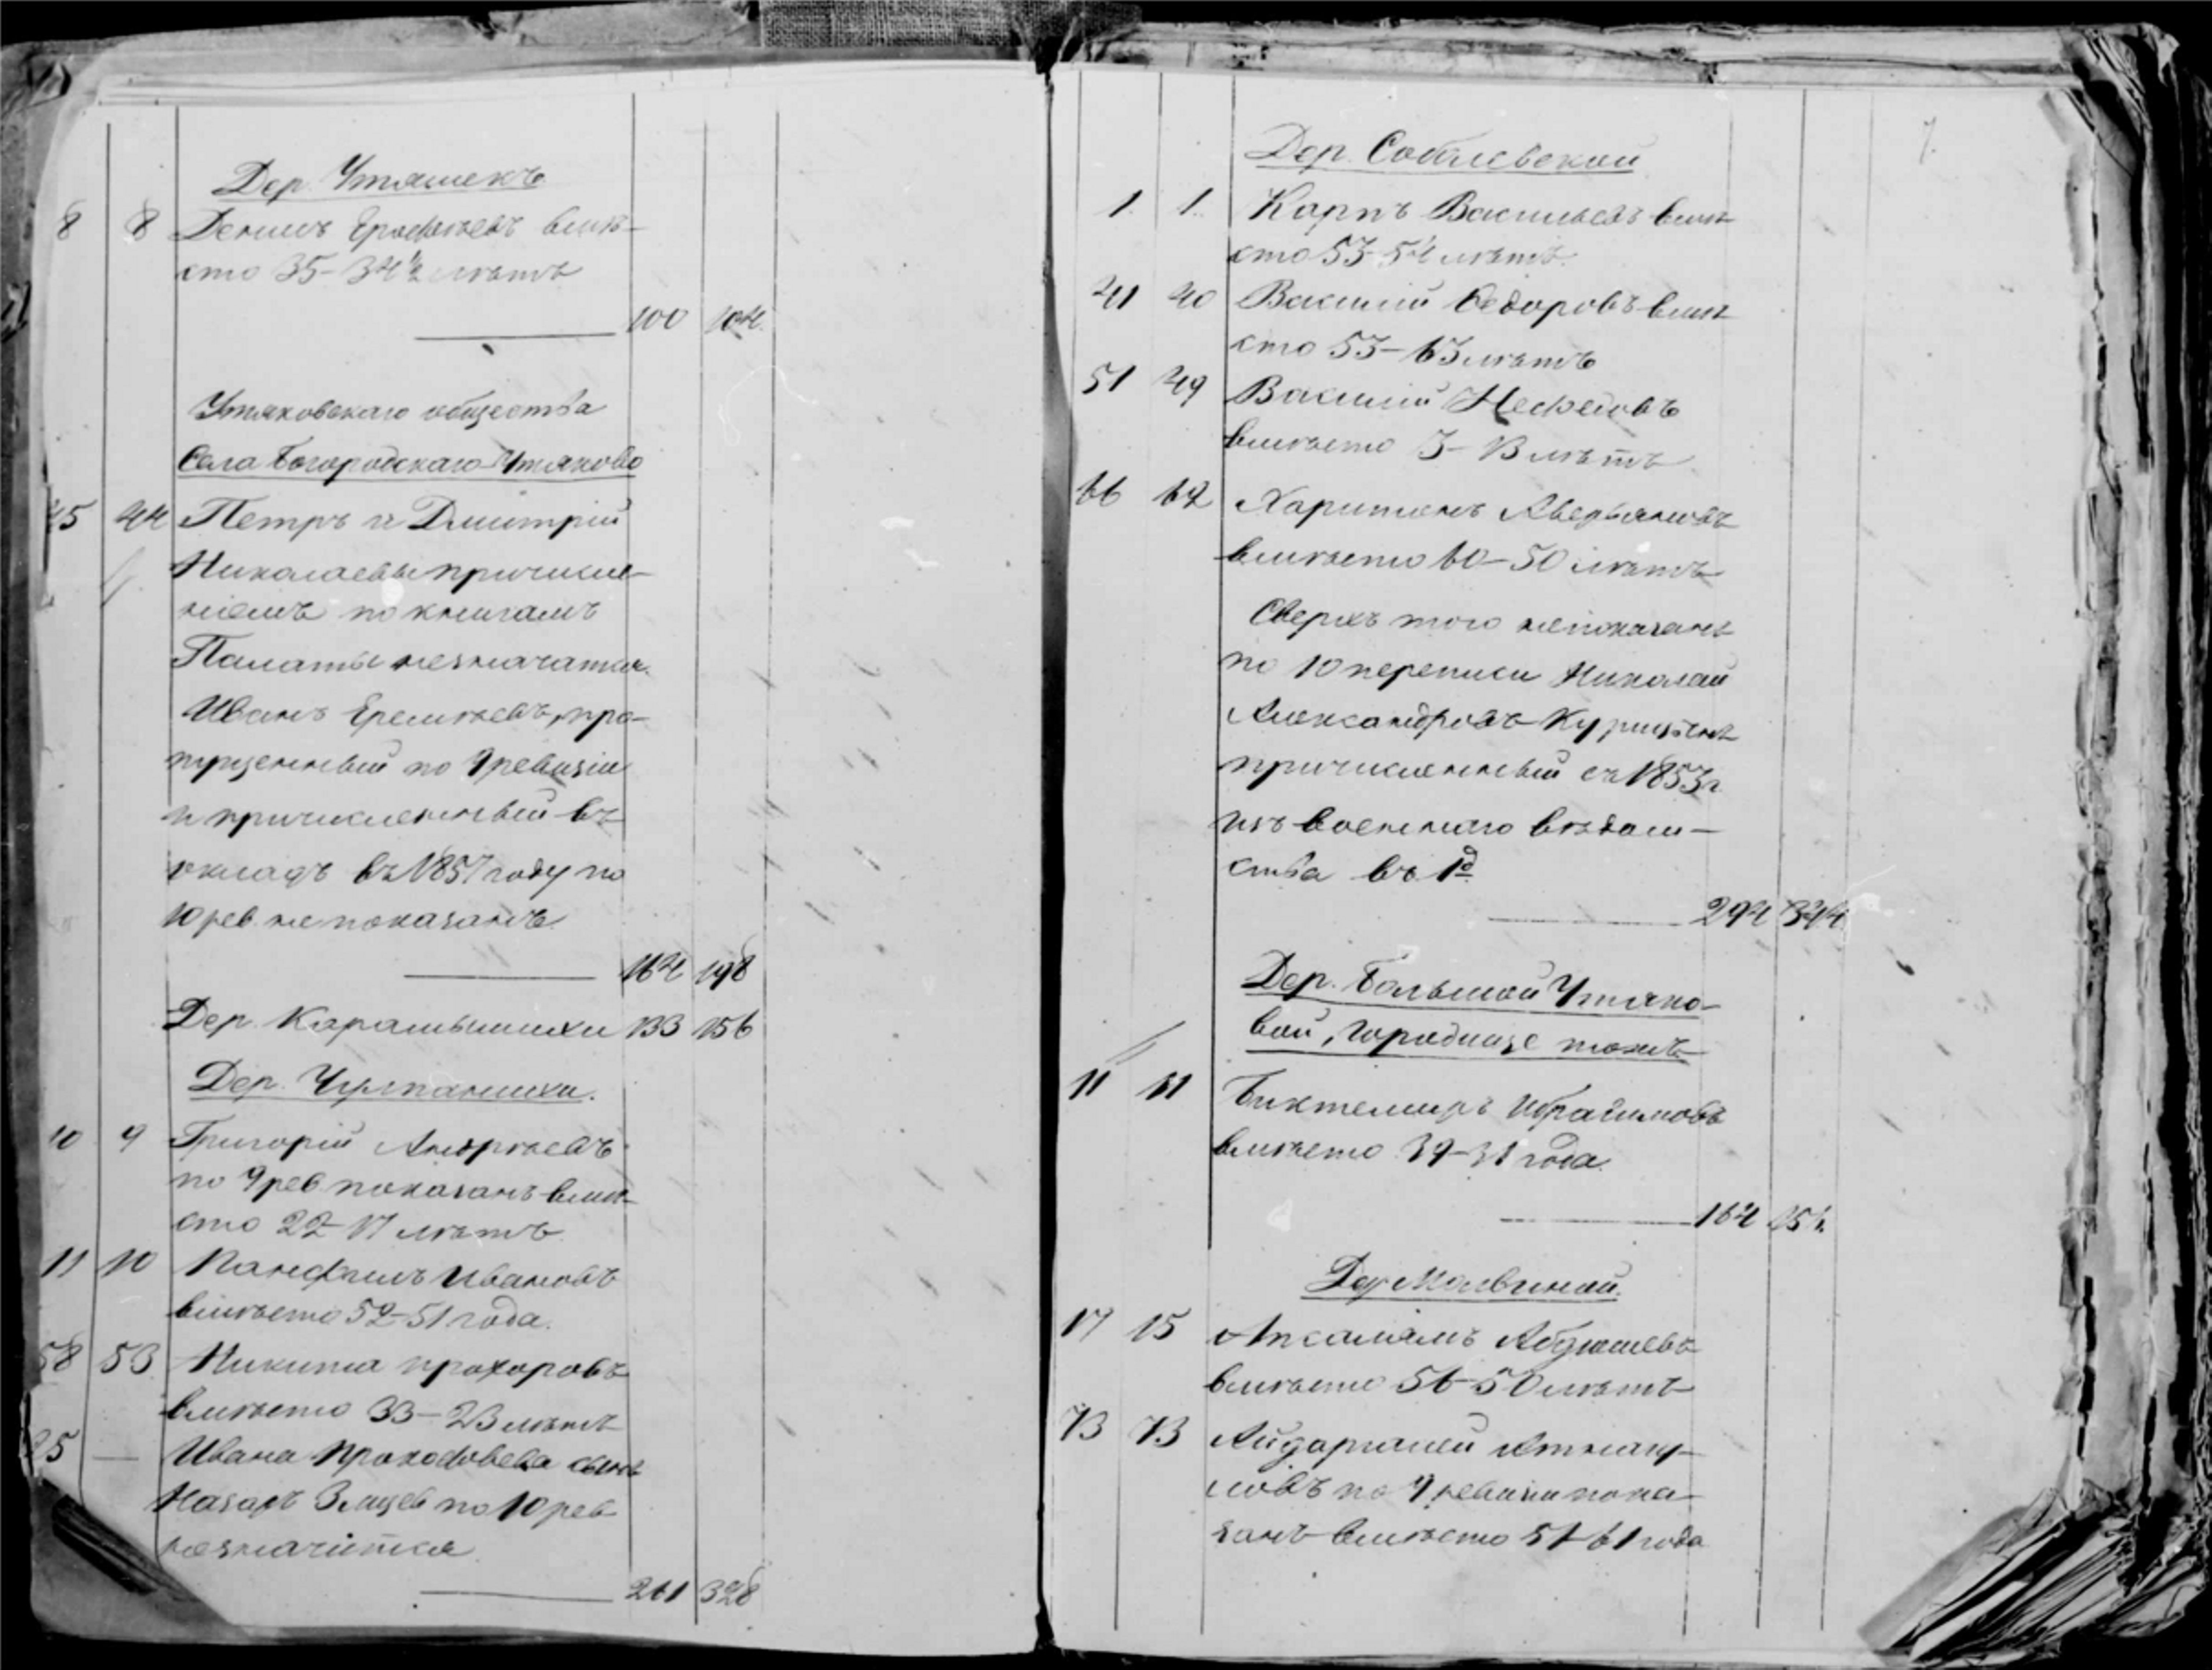 Дер. Утяшекъ
8 8 Денисъ Ерофѣевъ вмѣ-
сто 35-34½ лѣтъ
100 104.
Утяковскаго общества
Села Богородскаго Утяково
45 44 Петръ и Дмитрій
Николаевы причисле-
ніемъ по книгамъ
Палаты незначатся.
Иванъ Еремѣевъ, про-
пущенный по 9 ревизіи
и причисленный въ
окладъ въ 1857 году по
10 рев. не показанъ
164 198
Дер. Карамышихи 133 156
Дер. Чулпанихи.
10 9 Григорій Андрѣевъ
по 9 рев показанъ вмѣ-
сто 22-17 лѣтъ
11 10 Панфилъ Ивановъ
вмѣсто 52-51 года.
58 53 Никита Прохоровъ
вмѣсто 33-23 лѣтъ
— Ивана Прокофьева сынъ
Назаръ по 10 рев
незначится
261 328
7.
Дер. Соболевской
1. 1. Карпъ Васильевъ вмѣ-
сто 53-54 лѣтъ.
41 40 Василій Федоровъ вмѣ-
сто 53-63 лѣтъ
51 49 Василій Нефедовъ
вмѣсто 3-13 лѣтъ
66 62 Харитонъ Аверьяновъ
вмѣсто 60-50 лѣтъ
Сверхъ того непоказанъ
по 10 переписи Николай
Александровъ
причисленный съ 1853 г
изъ военнаго вѣдом-
ства въ 1 д
294 344
Дер. Большой Утяко-
вой, Городище тожъ
11 11 Биктемиръ Ибрагимовъ
вмѣсто 39-31 года.
164
Дер. Молвиной.
17 15 Апсалямъ Абдюшевъ
вмѣсто 56-50 лѣтъ
73 73 Айдаргалей
по 9 ревизіи пока-
занъ вмѣсто 51-61 года